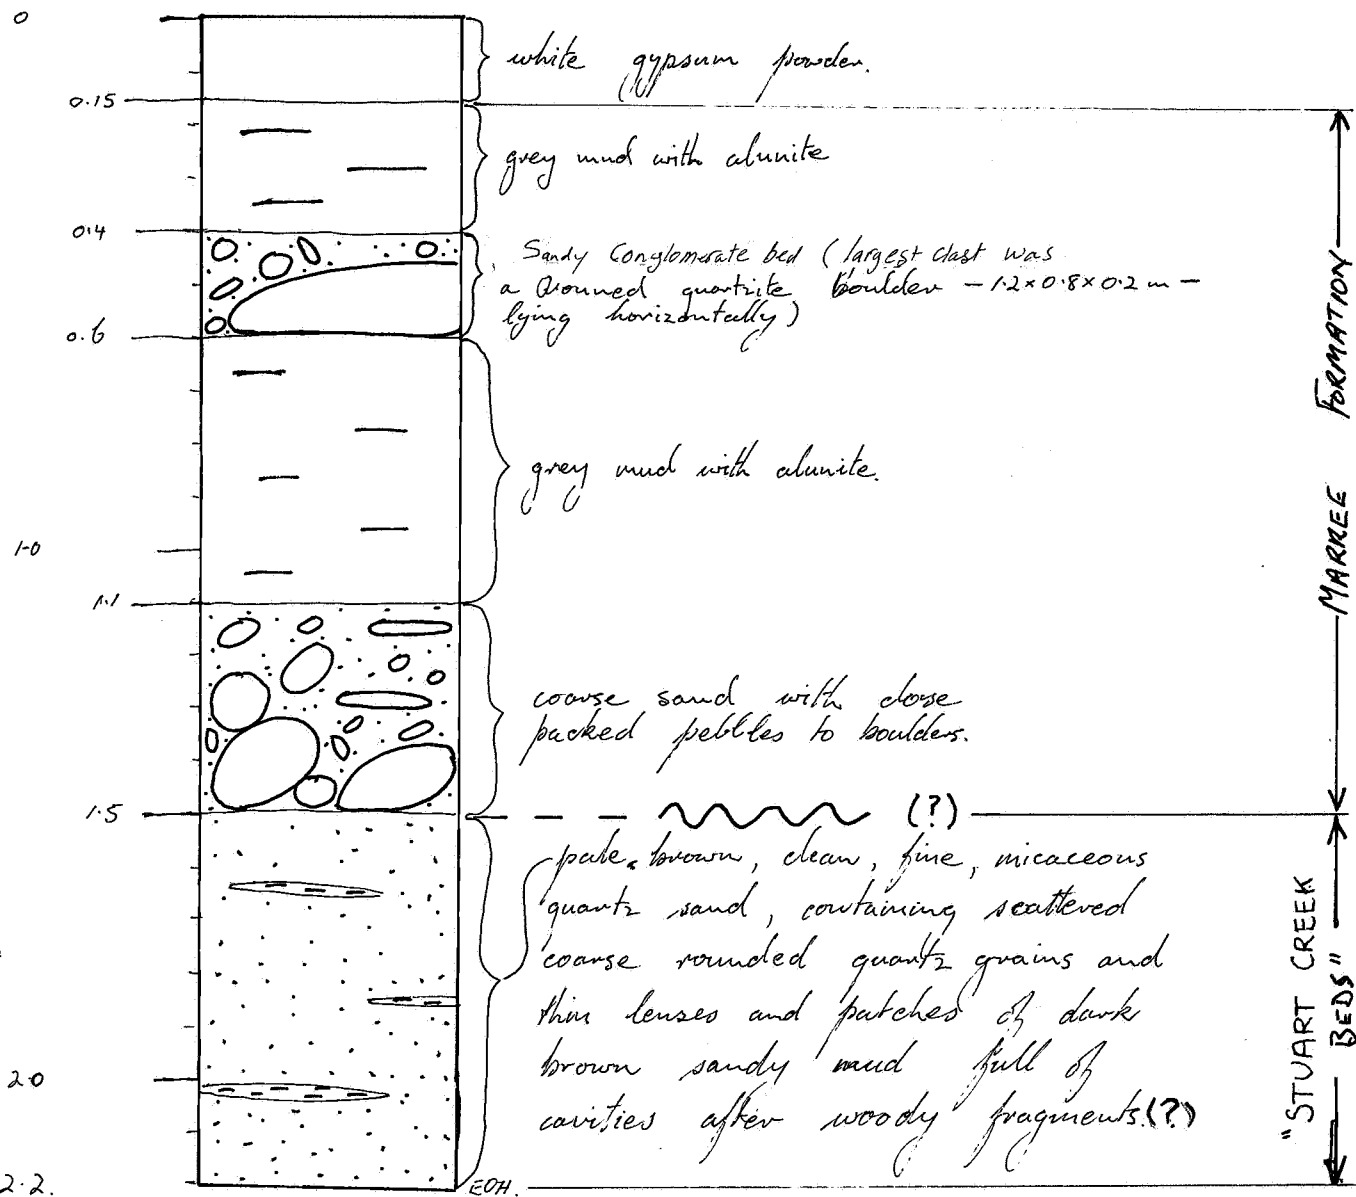 0
white gypsum powder.
0.15
grey mud with alunite
0.4
Sandy Conglomerate bed (largest clast was
a rounded quartzite boulder - 1.2 x 0.8 x 0.2 m -
lying horizontally)
0.6
grey mud with alunite.
1.0
1.1
coarse sand with close
packed pebbles to boulders.
1.5
(?)
pale brown, clean, fine, micaceous
quartz sand, containing scattered
coarse rounded quartz grains and
thin lenses and patches of dark
brown sandy mud full of
cavities after woody fragments.(?)
2.0
2.2.
EOH.
MARREE FORMATION
"STUART CREEK
BEDS"